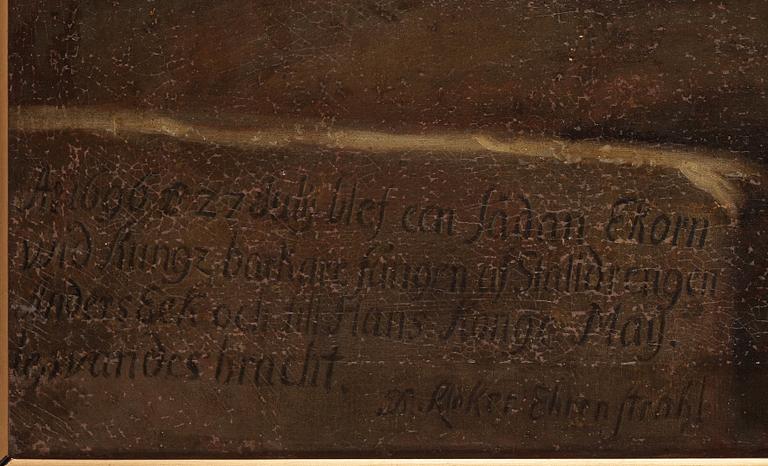 Ao 1696 D 27 Julij blef een sådan Ekorn
wid Kungz barkare fången af Stalldrengen
Anders Eek och till Hans Konge May.
lewandes bracht.
DK Klöker Ehrenstrahl